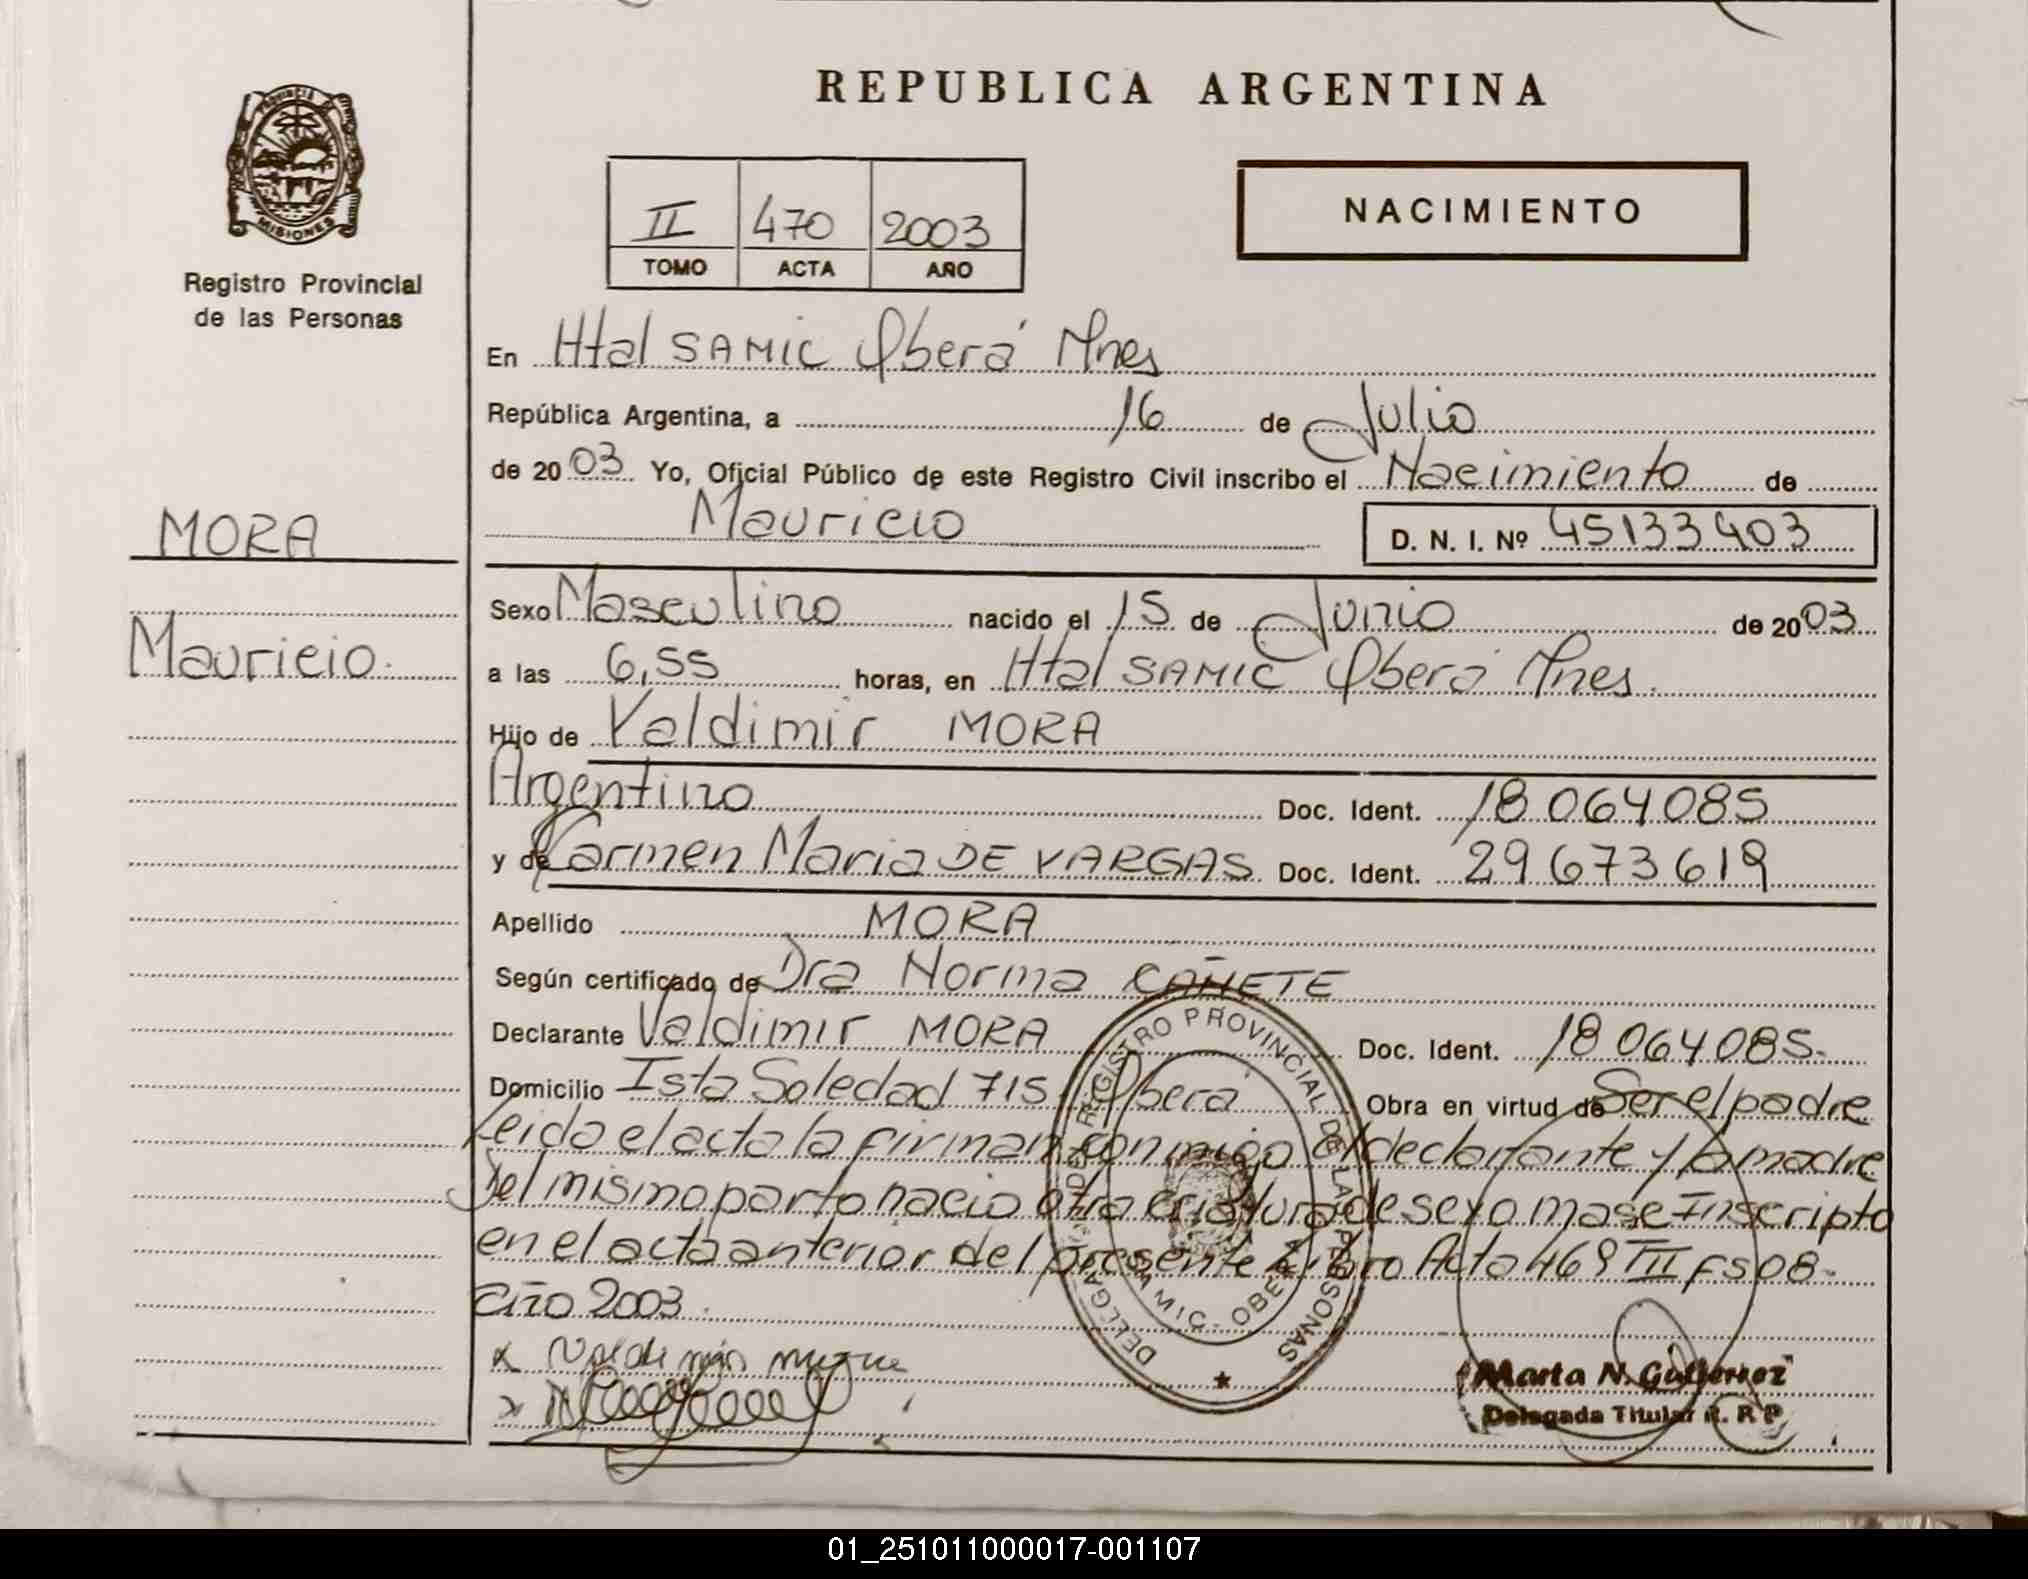 REPUBLICA ARGENTINA
PROVINCIA DE
MISIONES
Registro Provincial
de las Personas
II 470 2003
TOMO ACTA AÑO
NACIMIENTO
En Htal SAMIC Oberá Mnes
República Argentina, a 16 de Julio
de 2003 Yo, Oficial Público de este Registro Civil inscribo el Nacimiento de
Mauricio D. N. I. Nº 45133403
MORA
Mauricio.
Sexo Masculino nacido el 15 de Junio de 2003
a las 6,55 horas, en Htal SAMIC Oberá Mnes.
Hijo de Valdimir MORA
Argentino Doc. Ident. 18 064 085
y de Carmen Maria DE VARGAS Doc. Ident. 29 673 619
Apellido MORA
Según certificado de Dra Norma CAÑETE
Declarante Valdimir MORA Doc. Ident. 18 064 085.
Domicilio Ista Soledad 715 Oberá Obra en virtud de Ser el padre
Leida el acta la firman conmigo el declarante y la madre
Del mismo parto nacio otra criatura de sexo masc Inscripto
en el acta anterior del presente Libro Acta 469 TII FS08.
año 2003.
REGISTRO PROVINCIAL DE LAS PERSONAS
OBERA
Marta N. Gutierrez
Delegada Titular R. R P
01_251011000017-001107